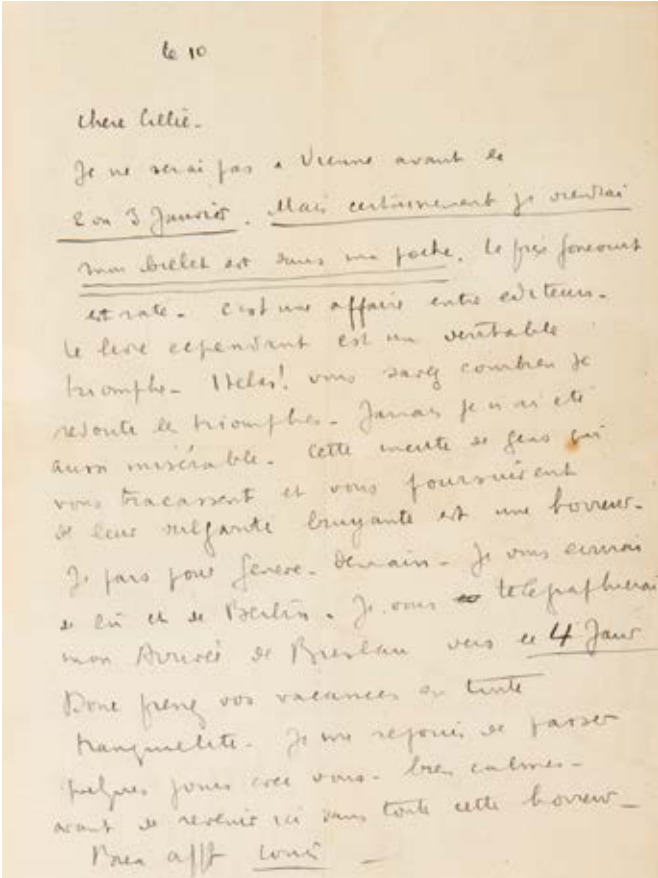 le 10
Chere Cillie.
Je ne serai pas a Vienne avant le
2 ou 3 Janvier. Mais certainement je viendrai
mon billet est dans ma poche. Le prix Goncourt
est raté. C'est une affaire entre editeurs.
Le livre cependant est un veritable
triomphe. Helas! vous savez combien je
redoute les triomphes. Jamais je n'ai eté
aussi misérable. Cette meute de gens qui
vous tracassent et vous poursuivent
de leur vulgarité bruyante est une horreur.
Je pars pour Geneve. demain. Je vous ecrirai
de là et de Berlin. Je vous telegraphierai
mon Arrivée de Breslau vers le 4 Janv
Donc prenez vos vacances en toute
tranquillité. Je me rejouis de passer
quelques jours avec vous. bien calmes.
avant de revenir ici dans toute cette horreur_
Bien afft Louis